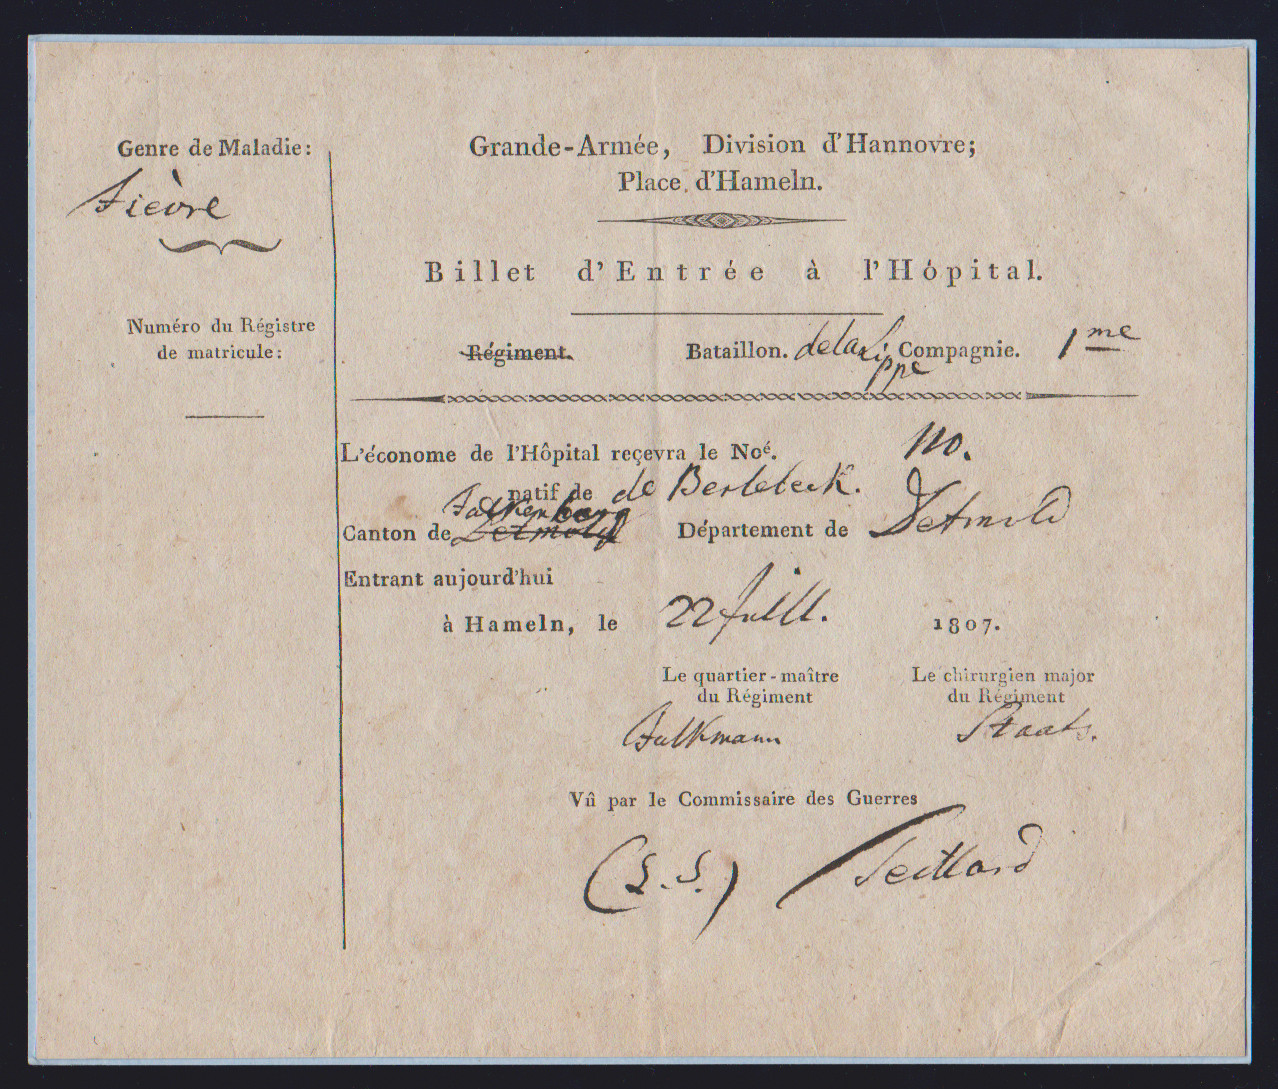 Genre de Maladie:
Fièvre
Numéro du Régistre
de matricule:
Grande-Armée, Division d'Hannovre;
Place d'Hameln.
Billet d'Entrée à l'Hôpital.
Régiment. Bataillon. de la Lippe Compagnie. 1me
L'économe de l'Hôpital reçevra le Noé. no.
natif de de Berlebeck.
Falkenberg
Canton de Detmold Département de Detmold
Entrant aujourd'hui
à Hameln, le 22 Juill. 1807.
Le quartier-maître
du Régiment
Falkmann
Le chirurgien major
du Régiment
Staats.
Vû par le Commissaire des Guerres
(L.S.)